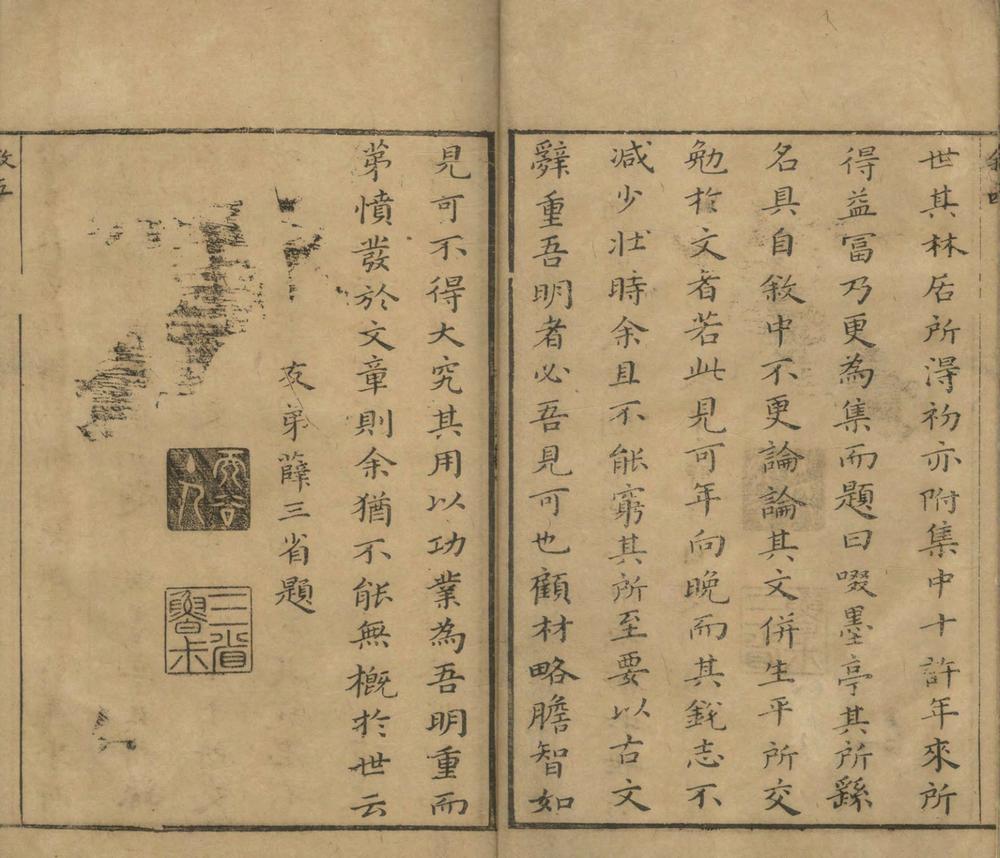 世其林居所得初亦附集中十許年來所
得益富乃更為集而題曰啜墨亭其所繇
名具自敘中不更論論其文併生平所交
勉於文者若此見可年向晚而其銳志不
減少壯時余且不能窮其所至要以古文
辭重吾明者必吾見可也顧材略膽智如
見可不得大究其用以功業為吾明重而
弟憤發於文章則余猶不能無概於世云
友弟薛三省題
三省魯未